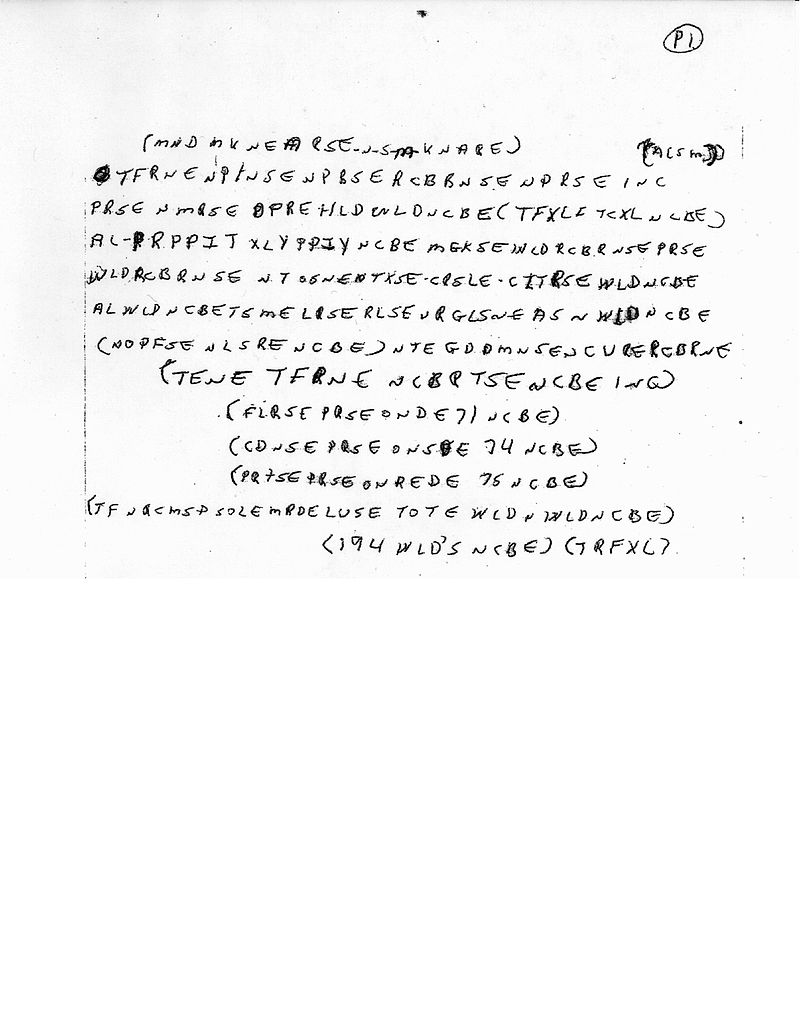 P1
(MND MKNEARSE-N-S-M-KNARE) (ACSM)
TFRNENPINSENPBSERCBRNSENPRSEINC
PRSENMRSEOPREHLDWLDNCBE(TFXLFTCXLNCBE)
AL-PRPPIT XLYPPIYNCBE MGKSEWLDRCBRNSEPRSE
WLDRCBRNSE NTOSNENTXSE-CRSLE-CITRSEWLDNCBE
ALWLDNCBETSMELRSERLSEURGLSNEASNWLDNCBE
(NOPFSENLSRENCBE)NTEGDDMNSENCURERCBRNE
(TENE TFRNE NCBRTSENCBEINC)
(FLRSE PRSEONDE71NCBE)
(CDNSE PRSEONSDE 74NCBE)
(PRTSE PRSEONREDE 75NCBE)
(TFNQCMSP SOLEMRDELUSE TOTE WLDN WLDNCBE)
(194 WLD'S NCBE) (TRFXL)